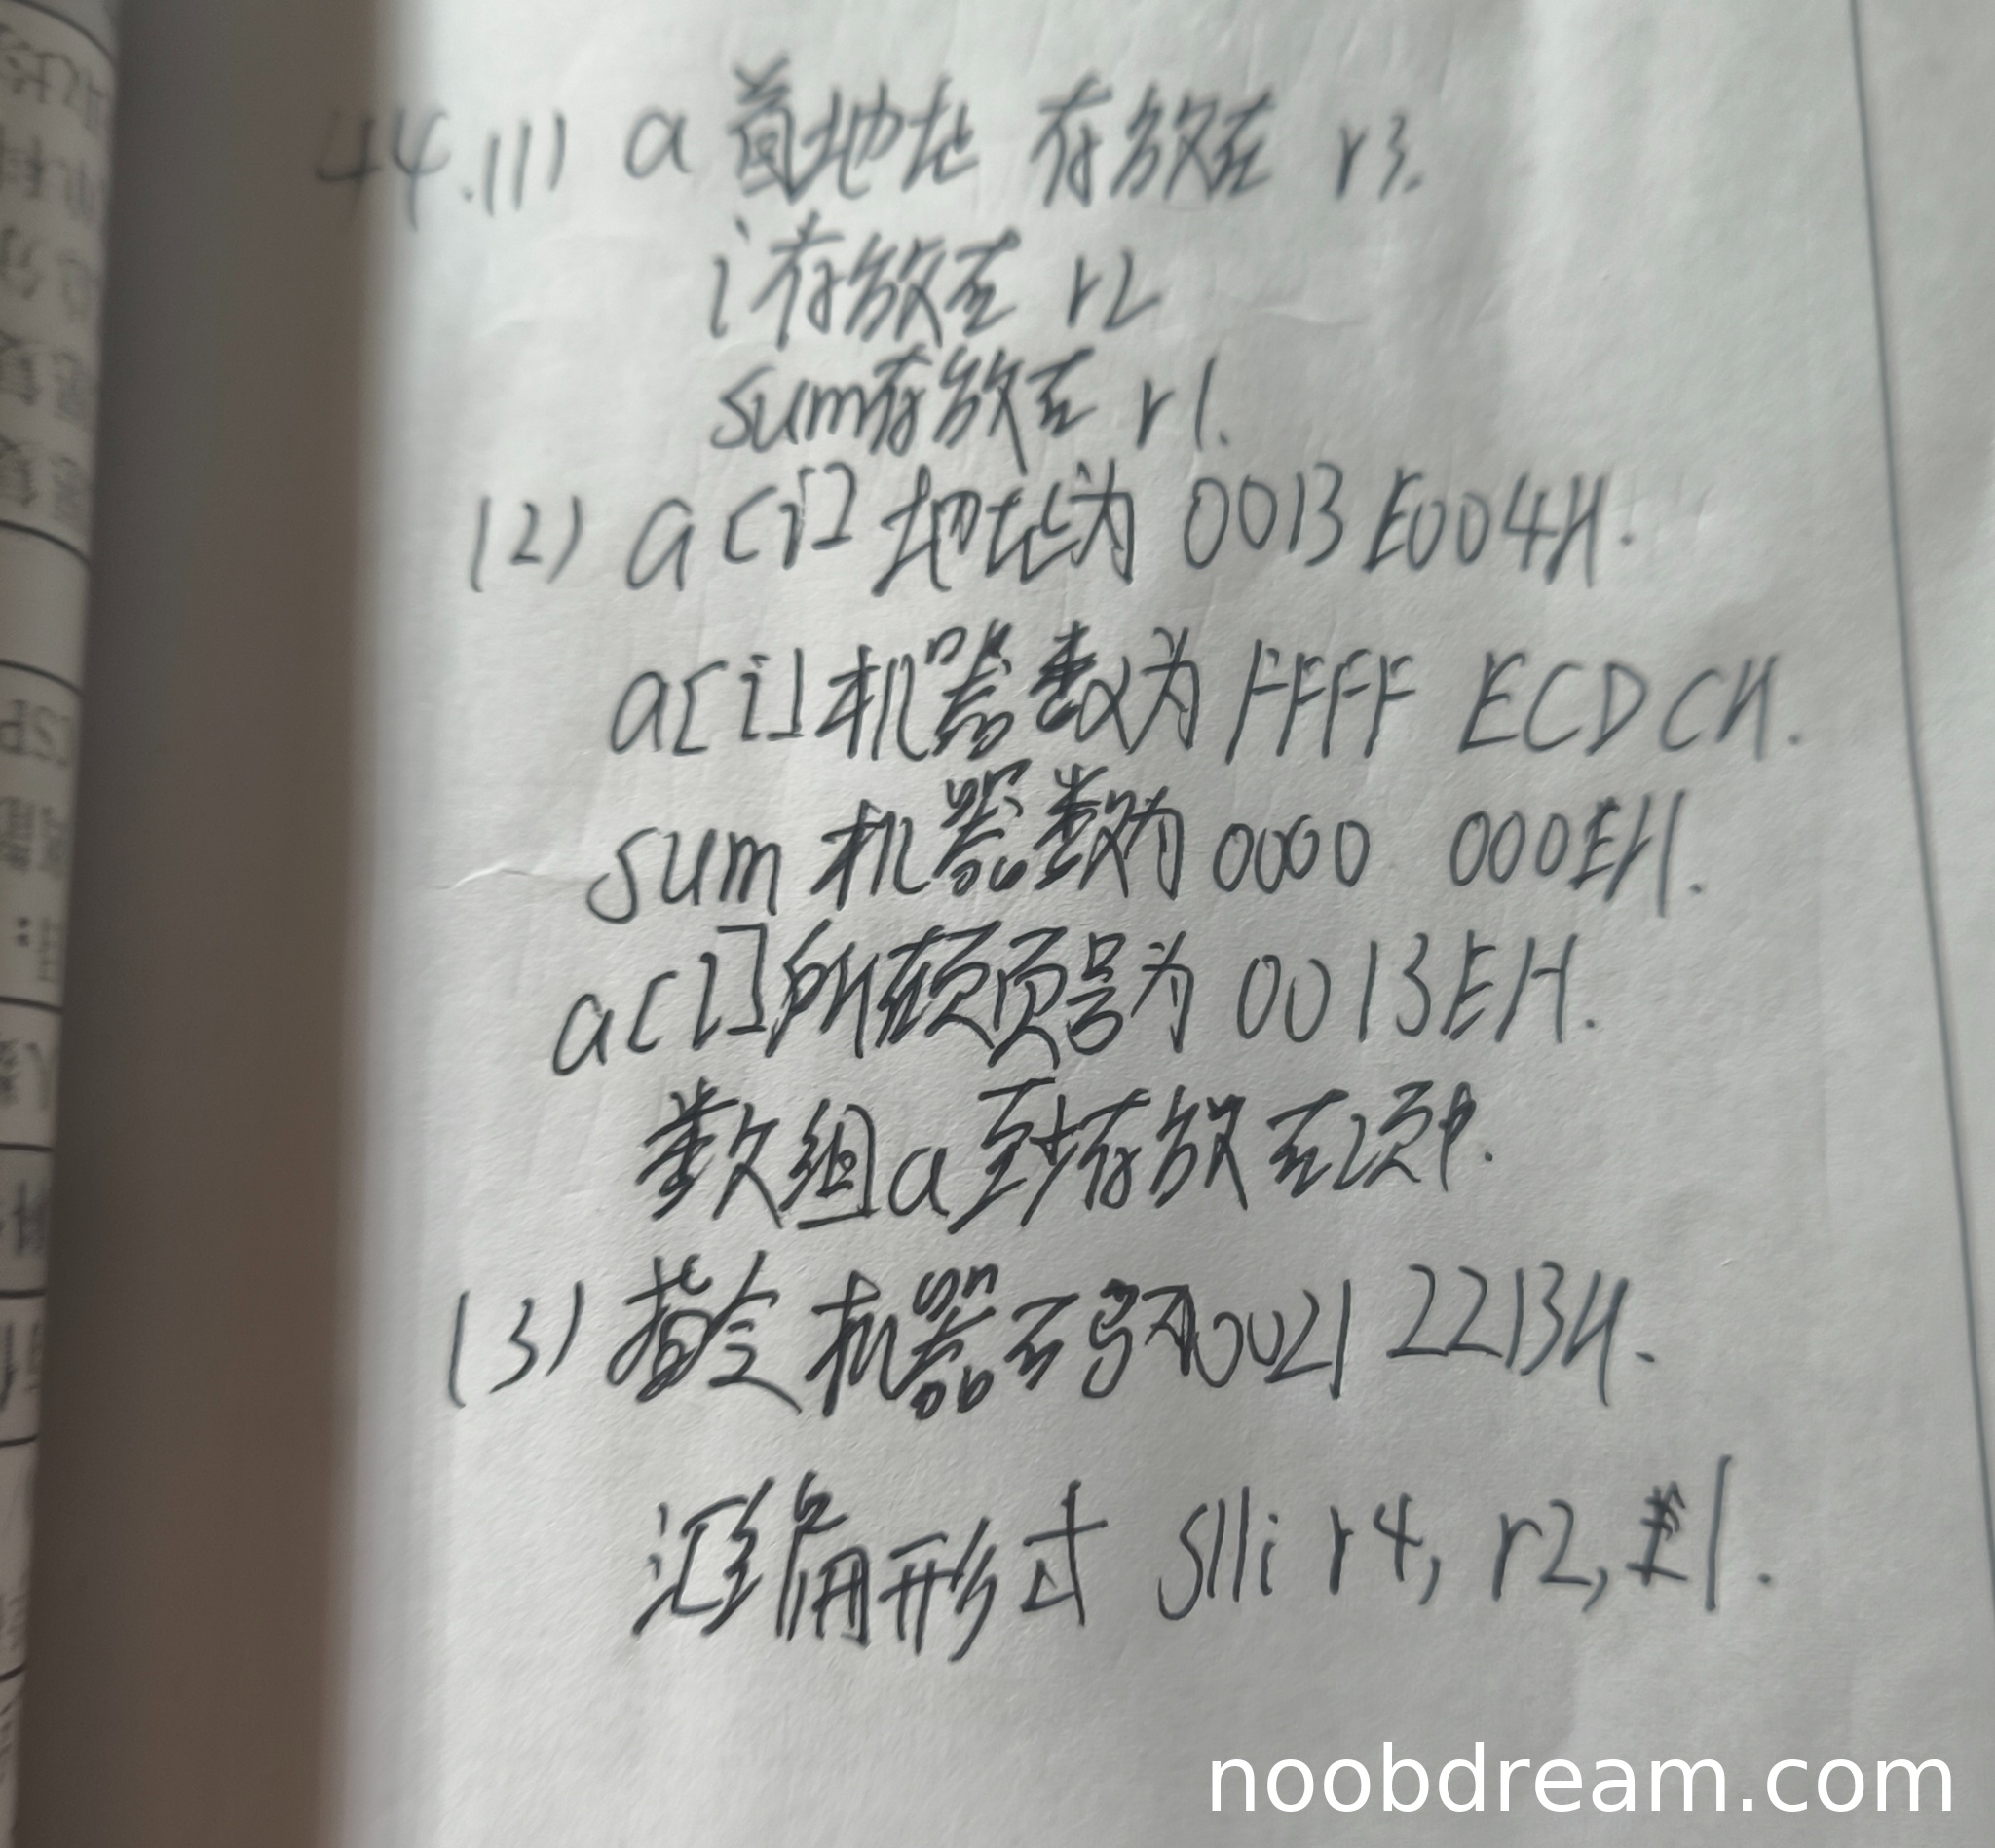 44.(1) a 首地址 存放在 r3.
i存放在 r2
sum存放在 r1.
(2) a[i] 地址为 0013 E004H.
a[i]机器数为 FFFF ECDCH.
sum 机器数为 0000 000EH.
a[i]所在页页号为 0013EH.
数组a至少存放在2页中.
(3) 指令机器码为0021 2213H.
汇编形式 slli r4, r2, 1.
noobdream.com